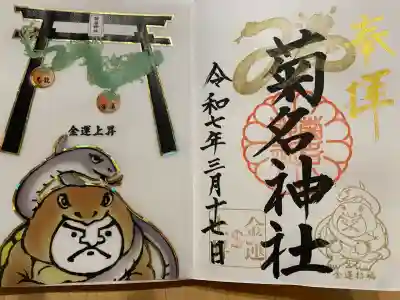 金運上昇
奉拝
菊名神社
令和七年三月十七日
金運
金運招福